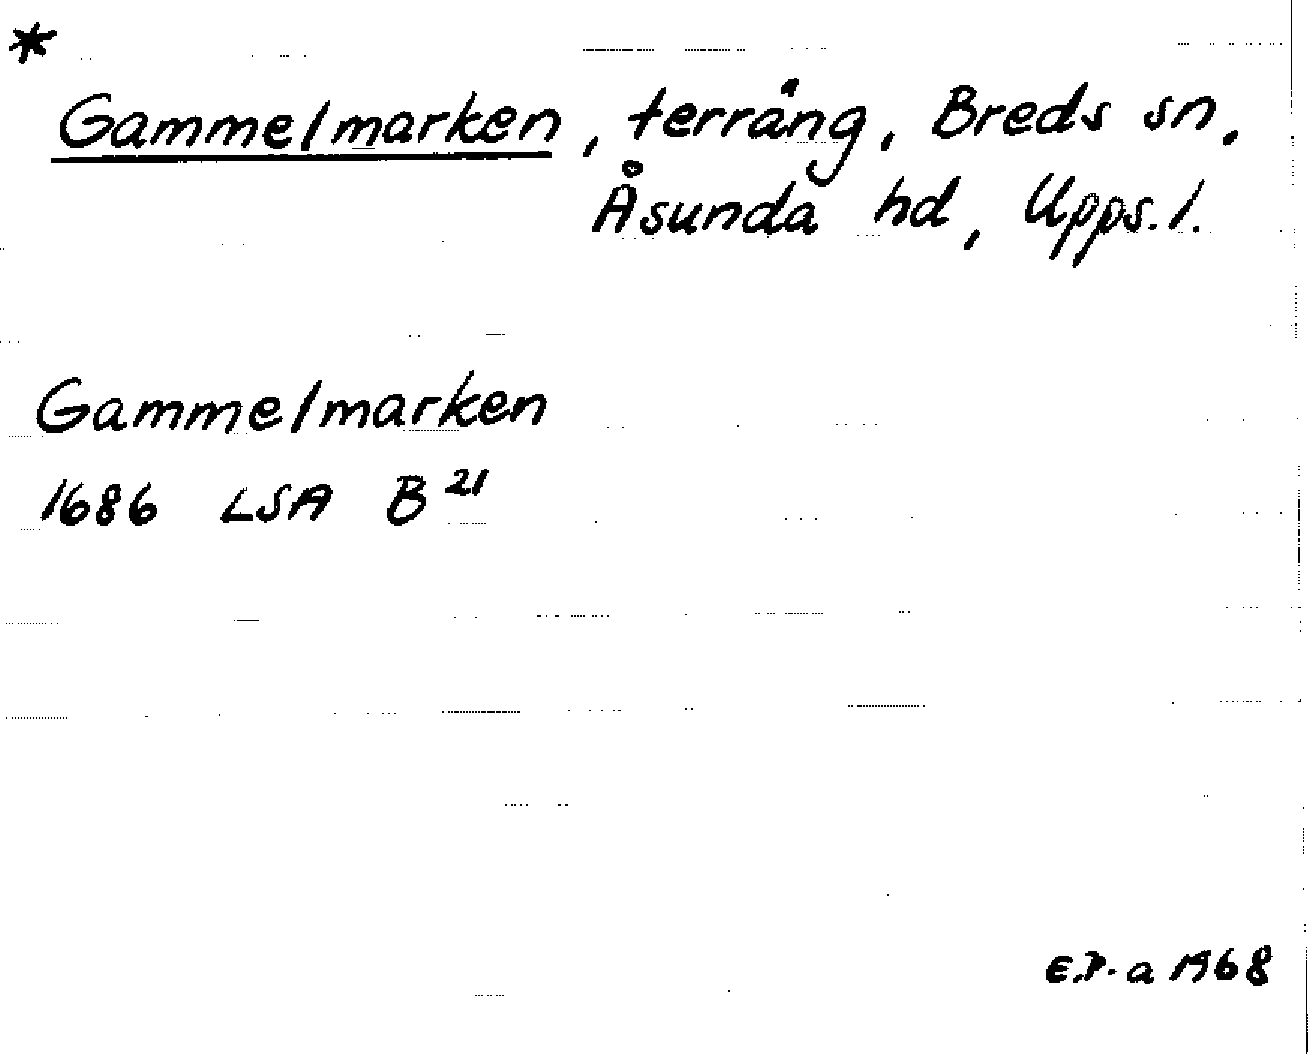 *
Gammelmarken, terräng, Breds sn,
Åsunda hd, Upps. l.
Gammelmarken
1686 LSA B 21
E.P-a 1968